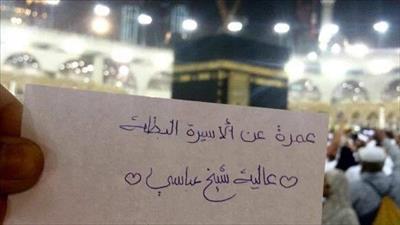 عمرة عن ألاسيرة البطلة
♡عالية شيخ عباسي♡